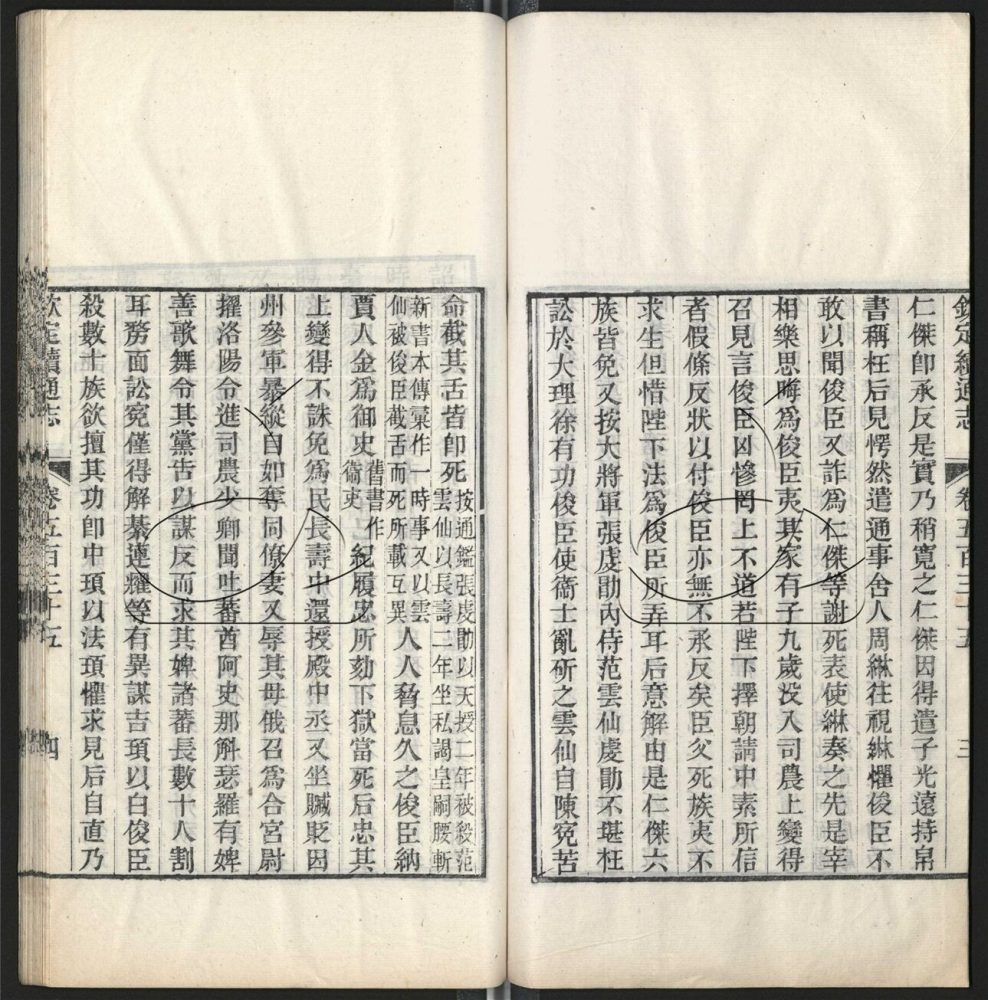 欽定續通志 卷五百三十五 三
仁傑卽承反是實乃稍寬之仁傑因得遣子光遠持帛
書稱枉后見愕然遣通事舍人周綝往視綝懼俊臣不
敢以聞俊臣又詐爲仁傑等謝死表使綝奏之先是宰
相樂思晦爲俊臣夷其家有子九歲沒入司農上變得
召見言俊臣凶慘罔上不道若陛下擇朝請中素所信
者假條反狀以付俊臣亦無不承反矣臣父死族夷不
求生但惜陛下法爲俊臣所弄耳后意解由是仁傑六
族皆免又按大將軍張虔勖內侍范雲仙虔勖不堪枉
訟於大理徐有功俊臣使衞士亂斫之雲仙自陳冤苦
命截其舌皆卽死按通鑑張虔勖以天授二年被殺范
雲仙以長壽二年坐私謁皇嗣腰斬
新書本傳彙作一時事又以雲
仙被俊臣截舌而死所載互異人人脅息久之俊臣納
賈人金爲御史舊書作
衞吏紀履忠所劾下獄當死后忠其
上變得不誅免爲民長壽中還授殿中丞又坐贓貶因
州參軍暴縱自如奪同僚妻又辱其母俄召爲合宮尉
擢洛陽令進司農少卿聞吐蕃酋阿史那斛瑟羅有婢
善歌舞令其黨告以謀反而求其婢諸蕃長數十人割
耳剺面訟冤僅得解綦連耀等有異謀吉頊以白俊臣
殺數十族欲擅其功卽中頊以法頊懼求見后自直乃
欽定續通志 卷五百三十五 四